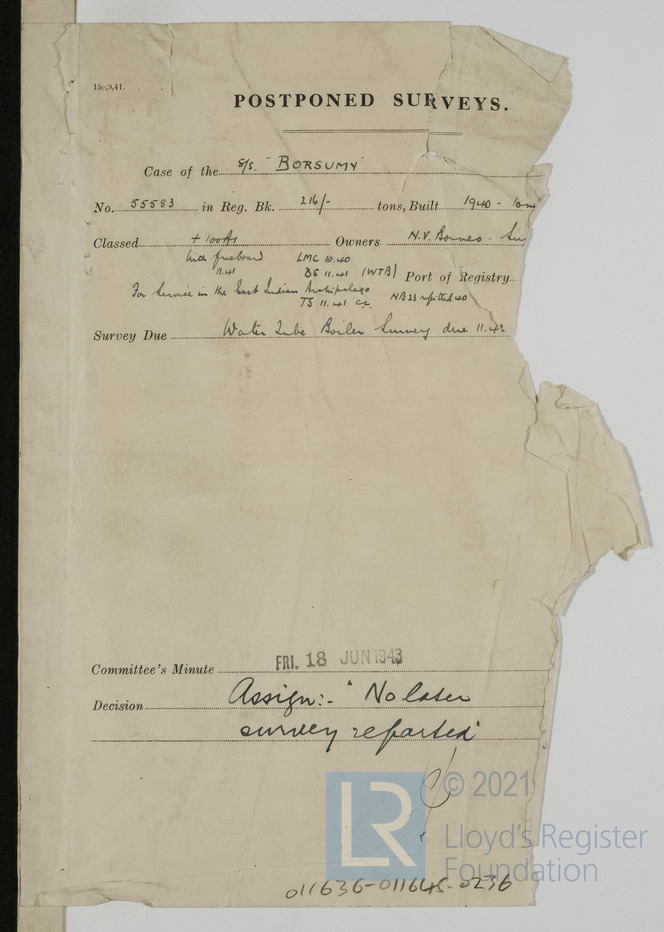 15c,9,41.
POSTPONED SURVEYS.
Case of the S/S. "BORSUMY"
No. 55583 in Reg. Bk. 216/- tons, Built 1940 - 10
Classed +100A1 Owners N.V. Borneo - Su
with freeboard LMC 10.40
11.41 BS 11.41 (WTB) Port of Registry
For Service in the East Indian Archipelago
TS 11.41 CL NB 23 refitted 40
Survey Due Water Tube Boiler Survey due 11.42
Committee's Minute FRI. 18 JUN 1943
Decision Assign:- "No later
survey reported"
LR
© 2021
Lloyd's Register
Foundation
011636-011645-0236